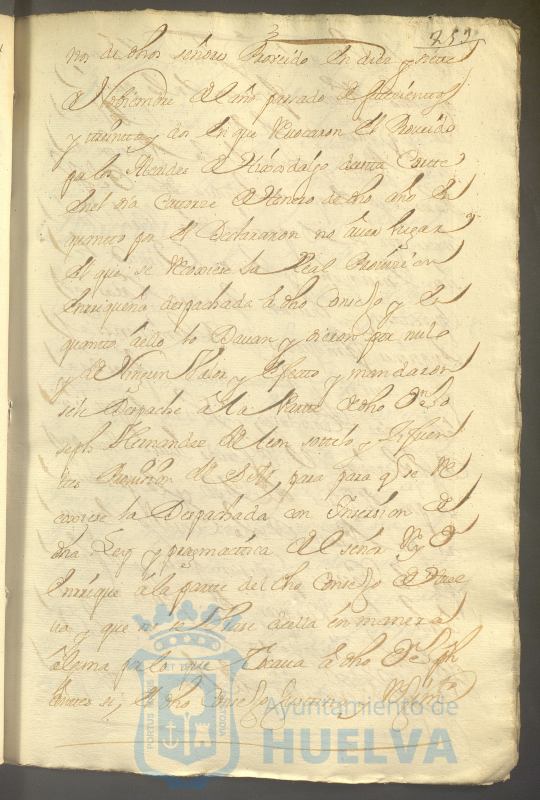 259
nos de dhos señores Proveido en diez y siete
de Noviembre del año pasado de setecientos
y treinta y dos en que Revocaron el Proveido
por los Alcaldes de Hijosdalgo desta Corte
en el dia Catorze de Henero de dho año en
quanto por el Declararon no haver lugar
el que se Recoxiese la Real Provision
enrriqueña despachada a dho Consejo y en
quanto a ello lo Davan y dieron por nulo
y de Ningun Valor y efecto y mandaron
se le Despache a la Parte de dho Dn. Jo
seph Hernandez de leon sottelo y
Provision de S. M. para que se Re
coxiese la Despachada con Inserzion de
dha Ley y pragmatica del señor Rey Dn
Enrrique a la parte del dho Consejo de
va y que no se Usase de ella en manera
alguna por lo que tocava a dho Dn. Jph
el dho Consejo
Ayuntamiento de
HUELVA
PORTUS MARIS ET TERRAE CUSTODIA